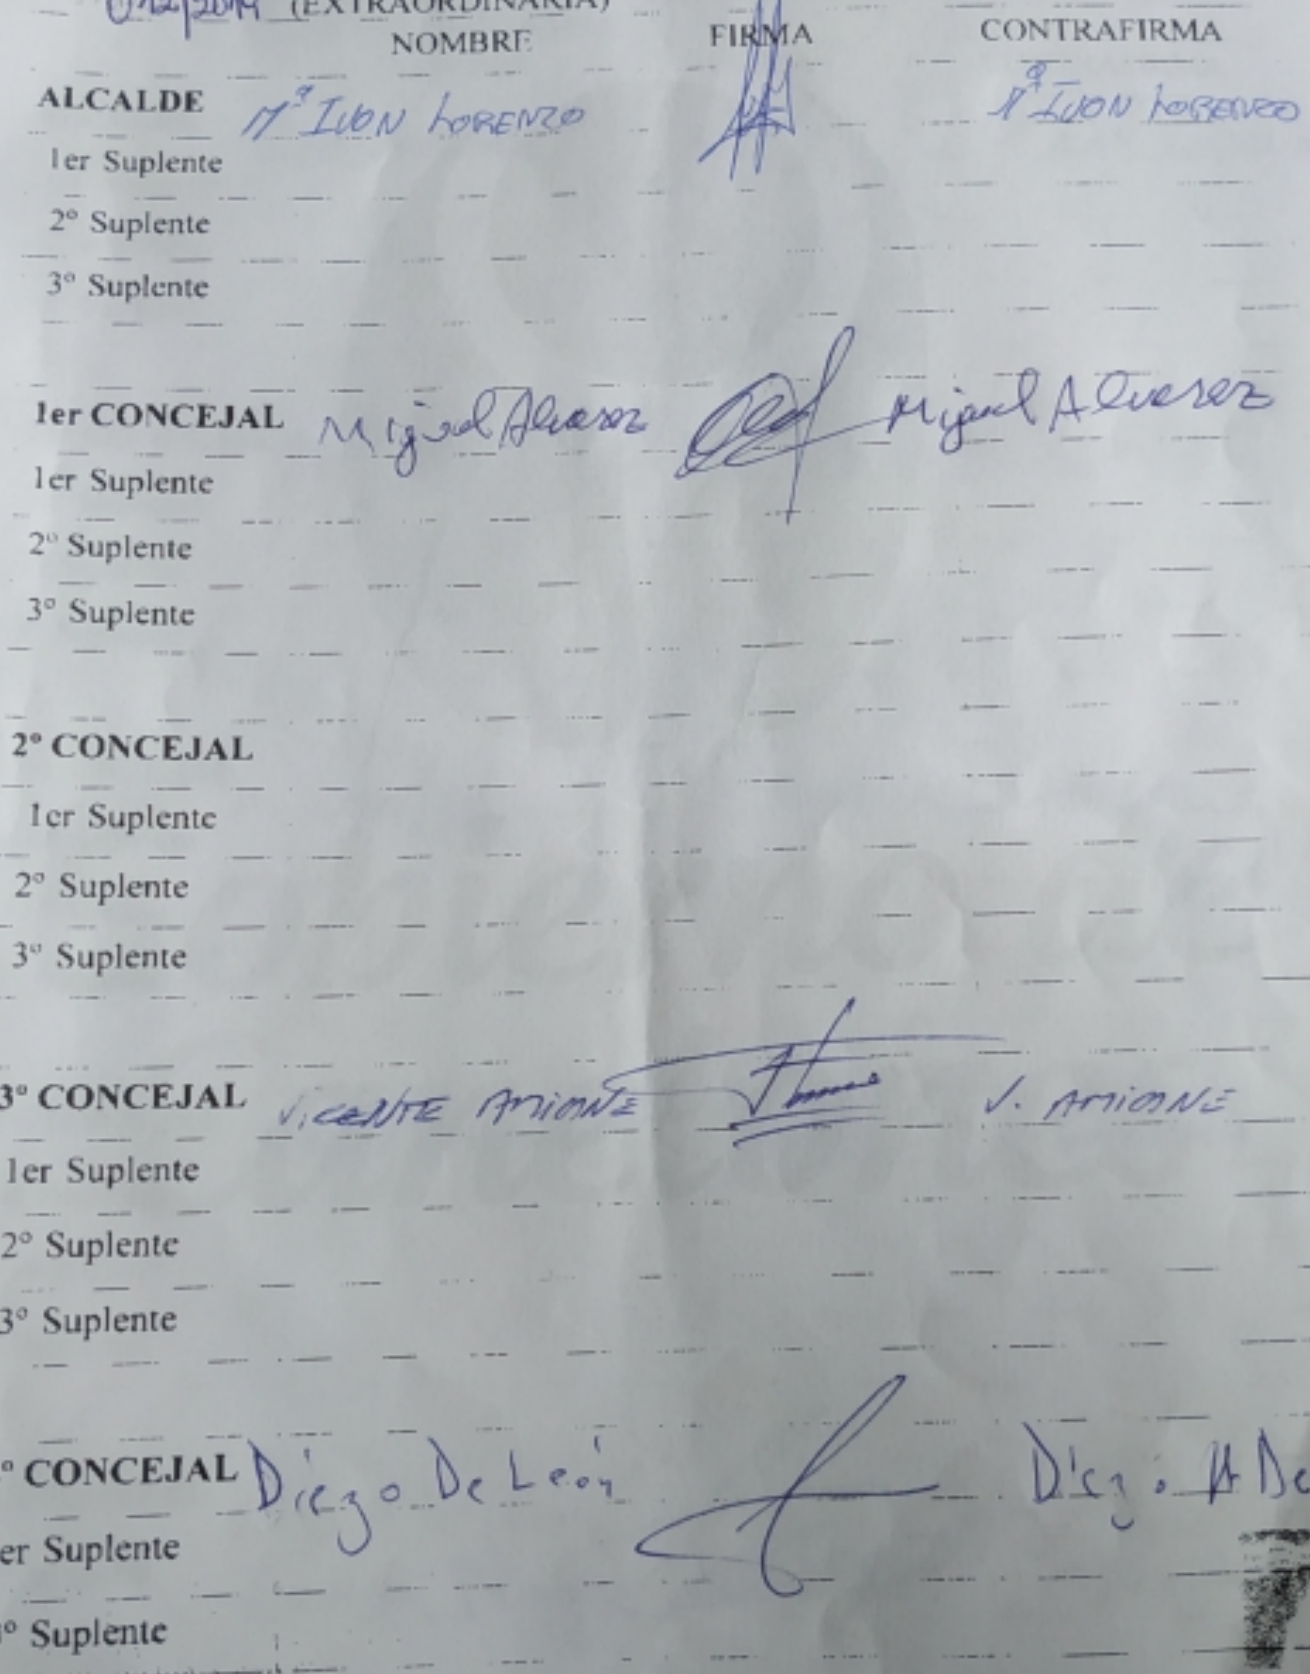 (EXTRAORDINARIA)
NOMBRE FIRMA CONTRAFIRMA
ALCALDE Mª IVON LORENZO Mª IVON LORENZO
1er Suplente
2º Suplente
3º Suplente
1er CONCEJAL Miguel Alvarez Miguel Alvarez
1er Suplente
2º Suplente
3º Suplente
2º CONCEJAL
1er Suplente
2º Suplente
3º Suplente
3º CONCEJAL VICENTE AMIONE V. AMIONE
1er Suplente
2º Suplente
3º Suplente
º CONCEJAL Diego De León Diego A De
er Suplente
º Suplente